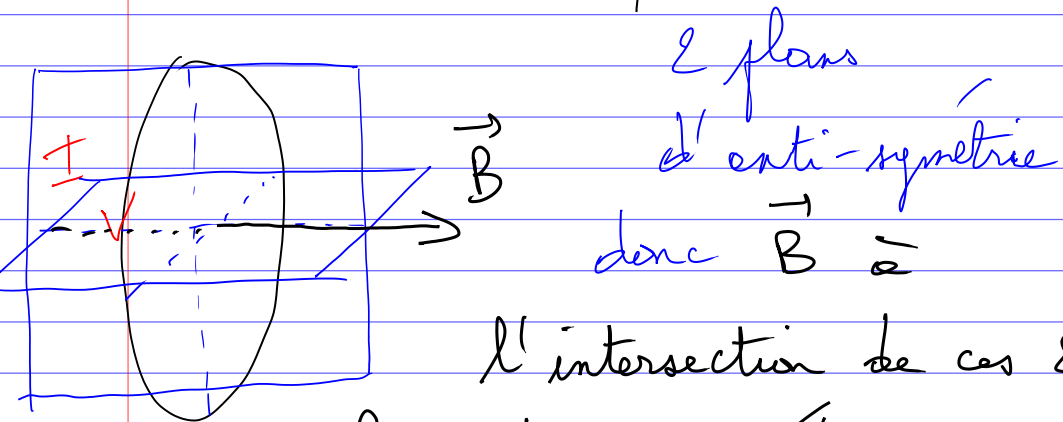 2 plans
d'anti-symétrie
donc B⃗ à
l'intersection de ces 2
I
B⃗